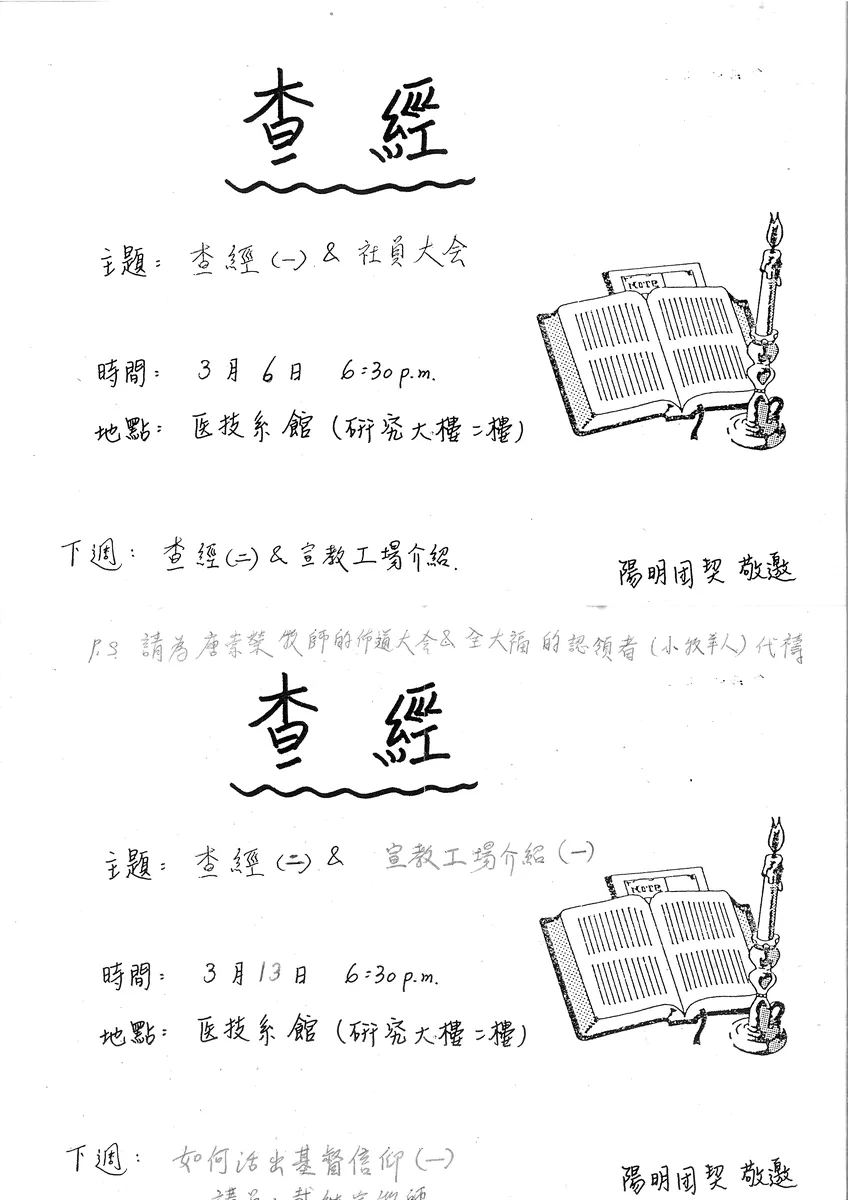 查經
主題: 查經(一) & 社員大会
NOTE
時間: 3月6日 6:30 p.m.
地點: 医技系館 (研究大樓二樓)
下週: 查經(二) & 宣教工場介紹.
陽明团契 敬邀
P.S 請為唐崇榮牧師的佈道大会 & 全大福的認領者 (小牧羊人) 代禱
查經
主題: 查經(二) & 宣教工場介紹 (一)
NOTE
時間: 3月13日 6:30 p.m.
地點: 医技系館 (研究大樓二樓)
下週: 如何活出基督信仰 (一)
陽明团契 敬邀